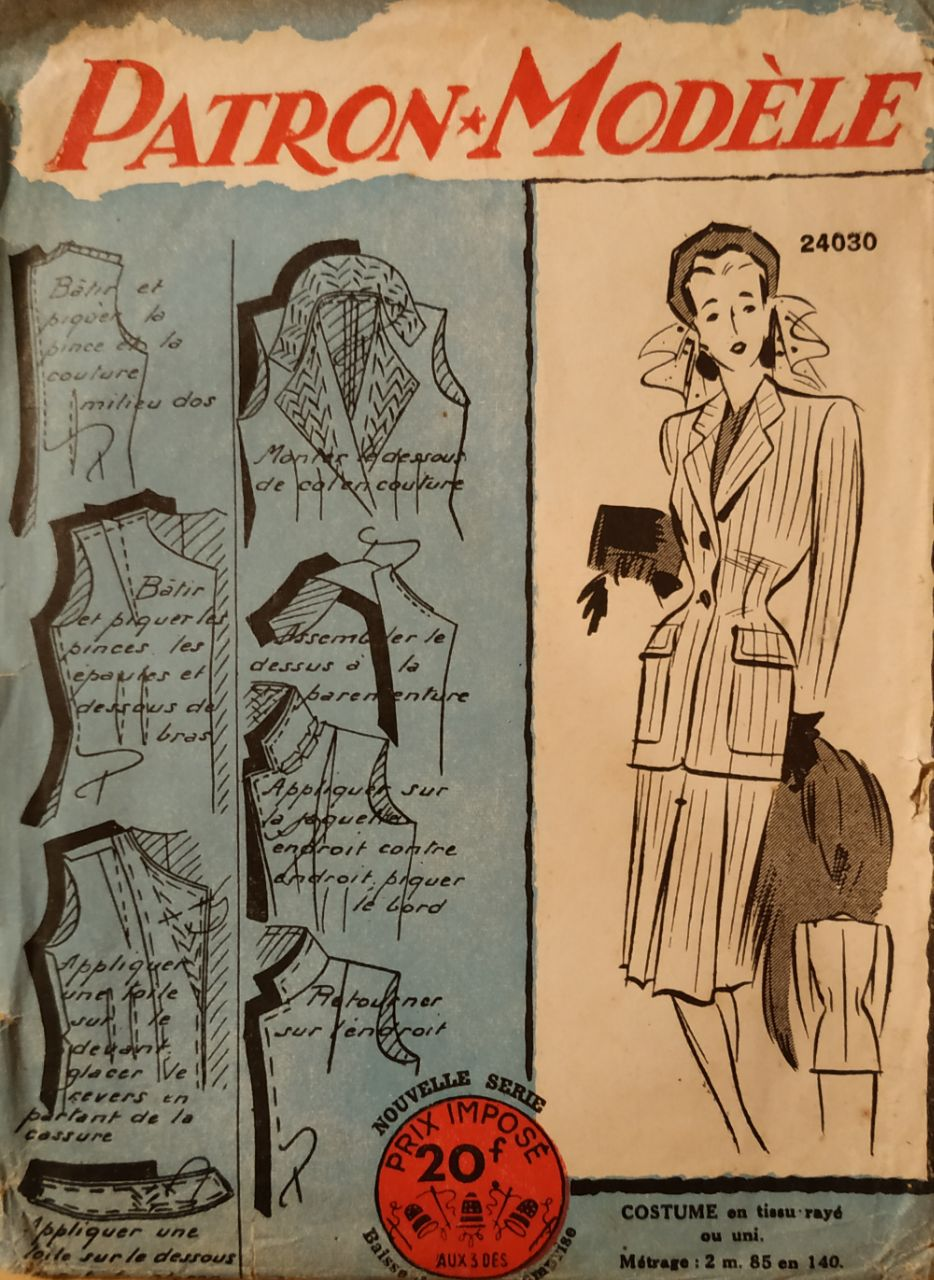 PATRON★MODÈLE
24030
Bâtir et
piquer la
pince et la
couture
milieu dos
Bâtir
et piquer les
pinces les
épaules et
dessous de
bras
Appliquer
une toile
sur le
devant
glacer le
revers en
partant de la
cassure
Appliquer une
toile sur le dessous
Monter le dessous
de col en couture
Assembler le
dessus à la
parementure
Appliquer sur
la jaquette
endroit contre
endroit, piquer
le bord
Retourner
sur l'endroit
NOUVELLE SERIE
PRIX IMPOSÉ
20f
AUX 3 DÉS
Baisse
COSTUME en tissu rayé
ou uni.
Métrage : 2 m. 85 en 140.